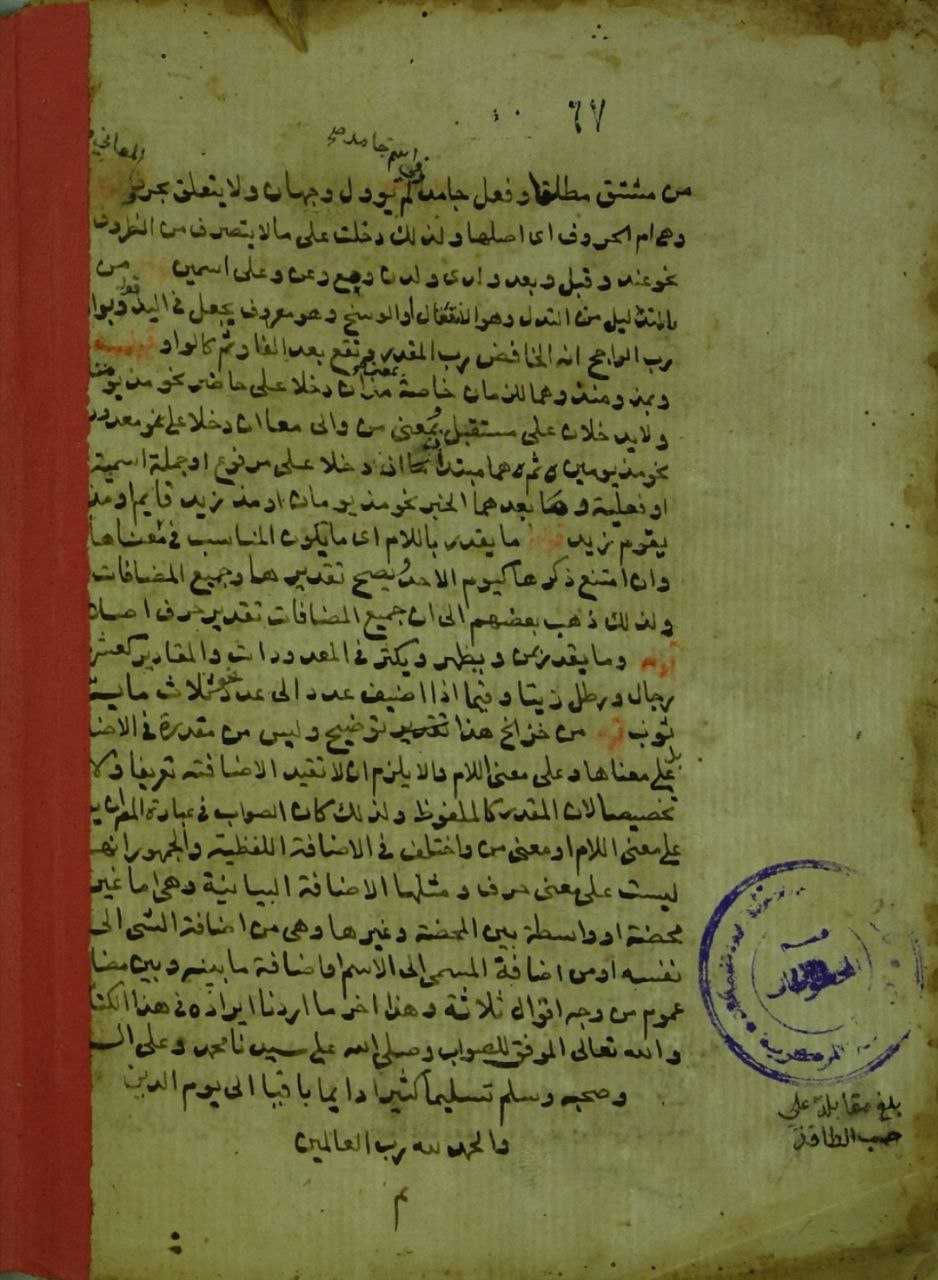 ٦٧
اسم جامد صح
المعاني
من مشتق مطلقا وفعل جامد لم يوول وجهان ولا يتعلق بحرف
وهي ام الحروف اى اصلها ولذلك دخلت على مالا يتصرف من الظروف
نحو عند وقبل وبعد ولدى ولدن ومع وعن وعلى اسمين من
المنديل من الندل وهو الانتقال او الوسخ وهو معروف يجعل في اليد وبواو
رب الراجح انه الخافض رب المقدر وتقع بعد الفا وثم كالواو
وبمذ ومنذ وهما للزمان خاصة دخلا على حاضر نحو مذ يومنا
ولا يدخلان على مستقبل بمعنى من والى معا ان دخلا على نحو معدود
نحو مذ يومين ثم هما مبتدا اذا دخلا على مرفوع او جملة اسمية
او فعلية وما بعدهما الخبر نحو مذ يومان او مذ زيد قايم او مذ
يقوم زيد ما يقدر باللام اى ما يكون المناسب في معناها
وان امتنع ذكرها كيوم الاحد ويصح تقديرها وجميع المضافات
ولذلك ذهب بعضهم الى ان جميع المضافات تقدير حرف اصلا
وما يقدر بمن ويظهر ويكثر في المعدودات والمقادير كعشرة
رجال ورطل زيتا وفيما اذا اضيف عدد الى عدد نحو ثلاث ماية
ثوب من خز الخ هذا تقدير توضيح وليس من مقدرة في الاضا
بل على معناها وعلى معنى اللام والا يلزم ان لا تفيد الاضافة تعريفا ولا
تخصيصا لان المقدر كالملفوظ ولذلك كان الصواب في عبارة المص ان
على معنى اللام او معنى من واختلف في الاضافة اللفظية والجمهور انها
ليست على معنى حرف ومثلها الاضافة البيانية وهى اما غير
محضة او واسطة بين المحضة وغيرها وهى من اضافة الشى الى
نفسه او من اضافة المسمى الى الاسم او اضافة ما بينه وبين مضا
عموم من وجه اقوال ثلاثة وهذا اخر ما اردنا ايراده في هذا الكتا
والله تعالى الموفق للصواب وصلى الله على سيدنا محمد وعلى اله
وصحبه وسلم تسليما كثيرا دايما باقيا الى يوم الدين
والحمد لله رب العالمين
م
بلغ مقابلة على
حسب الطاقة